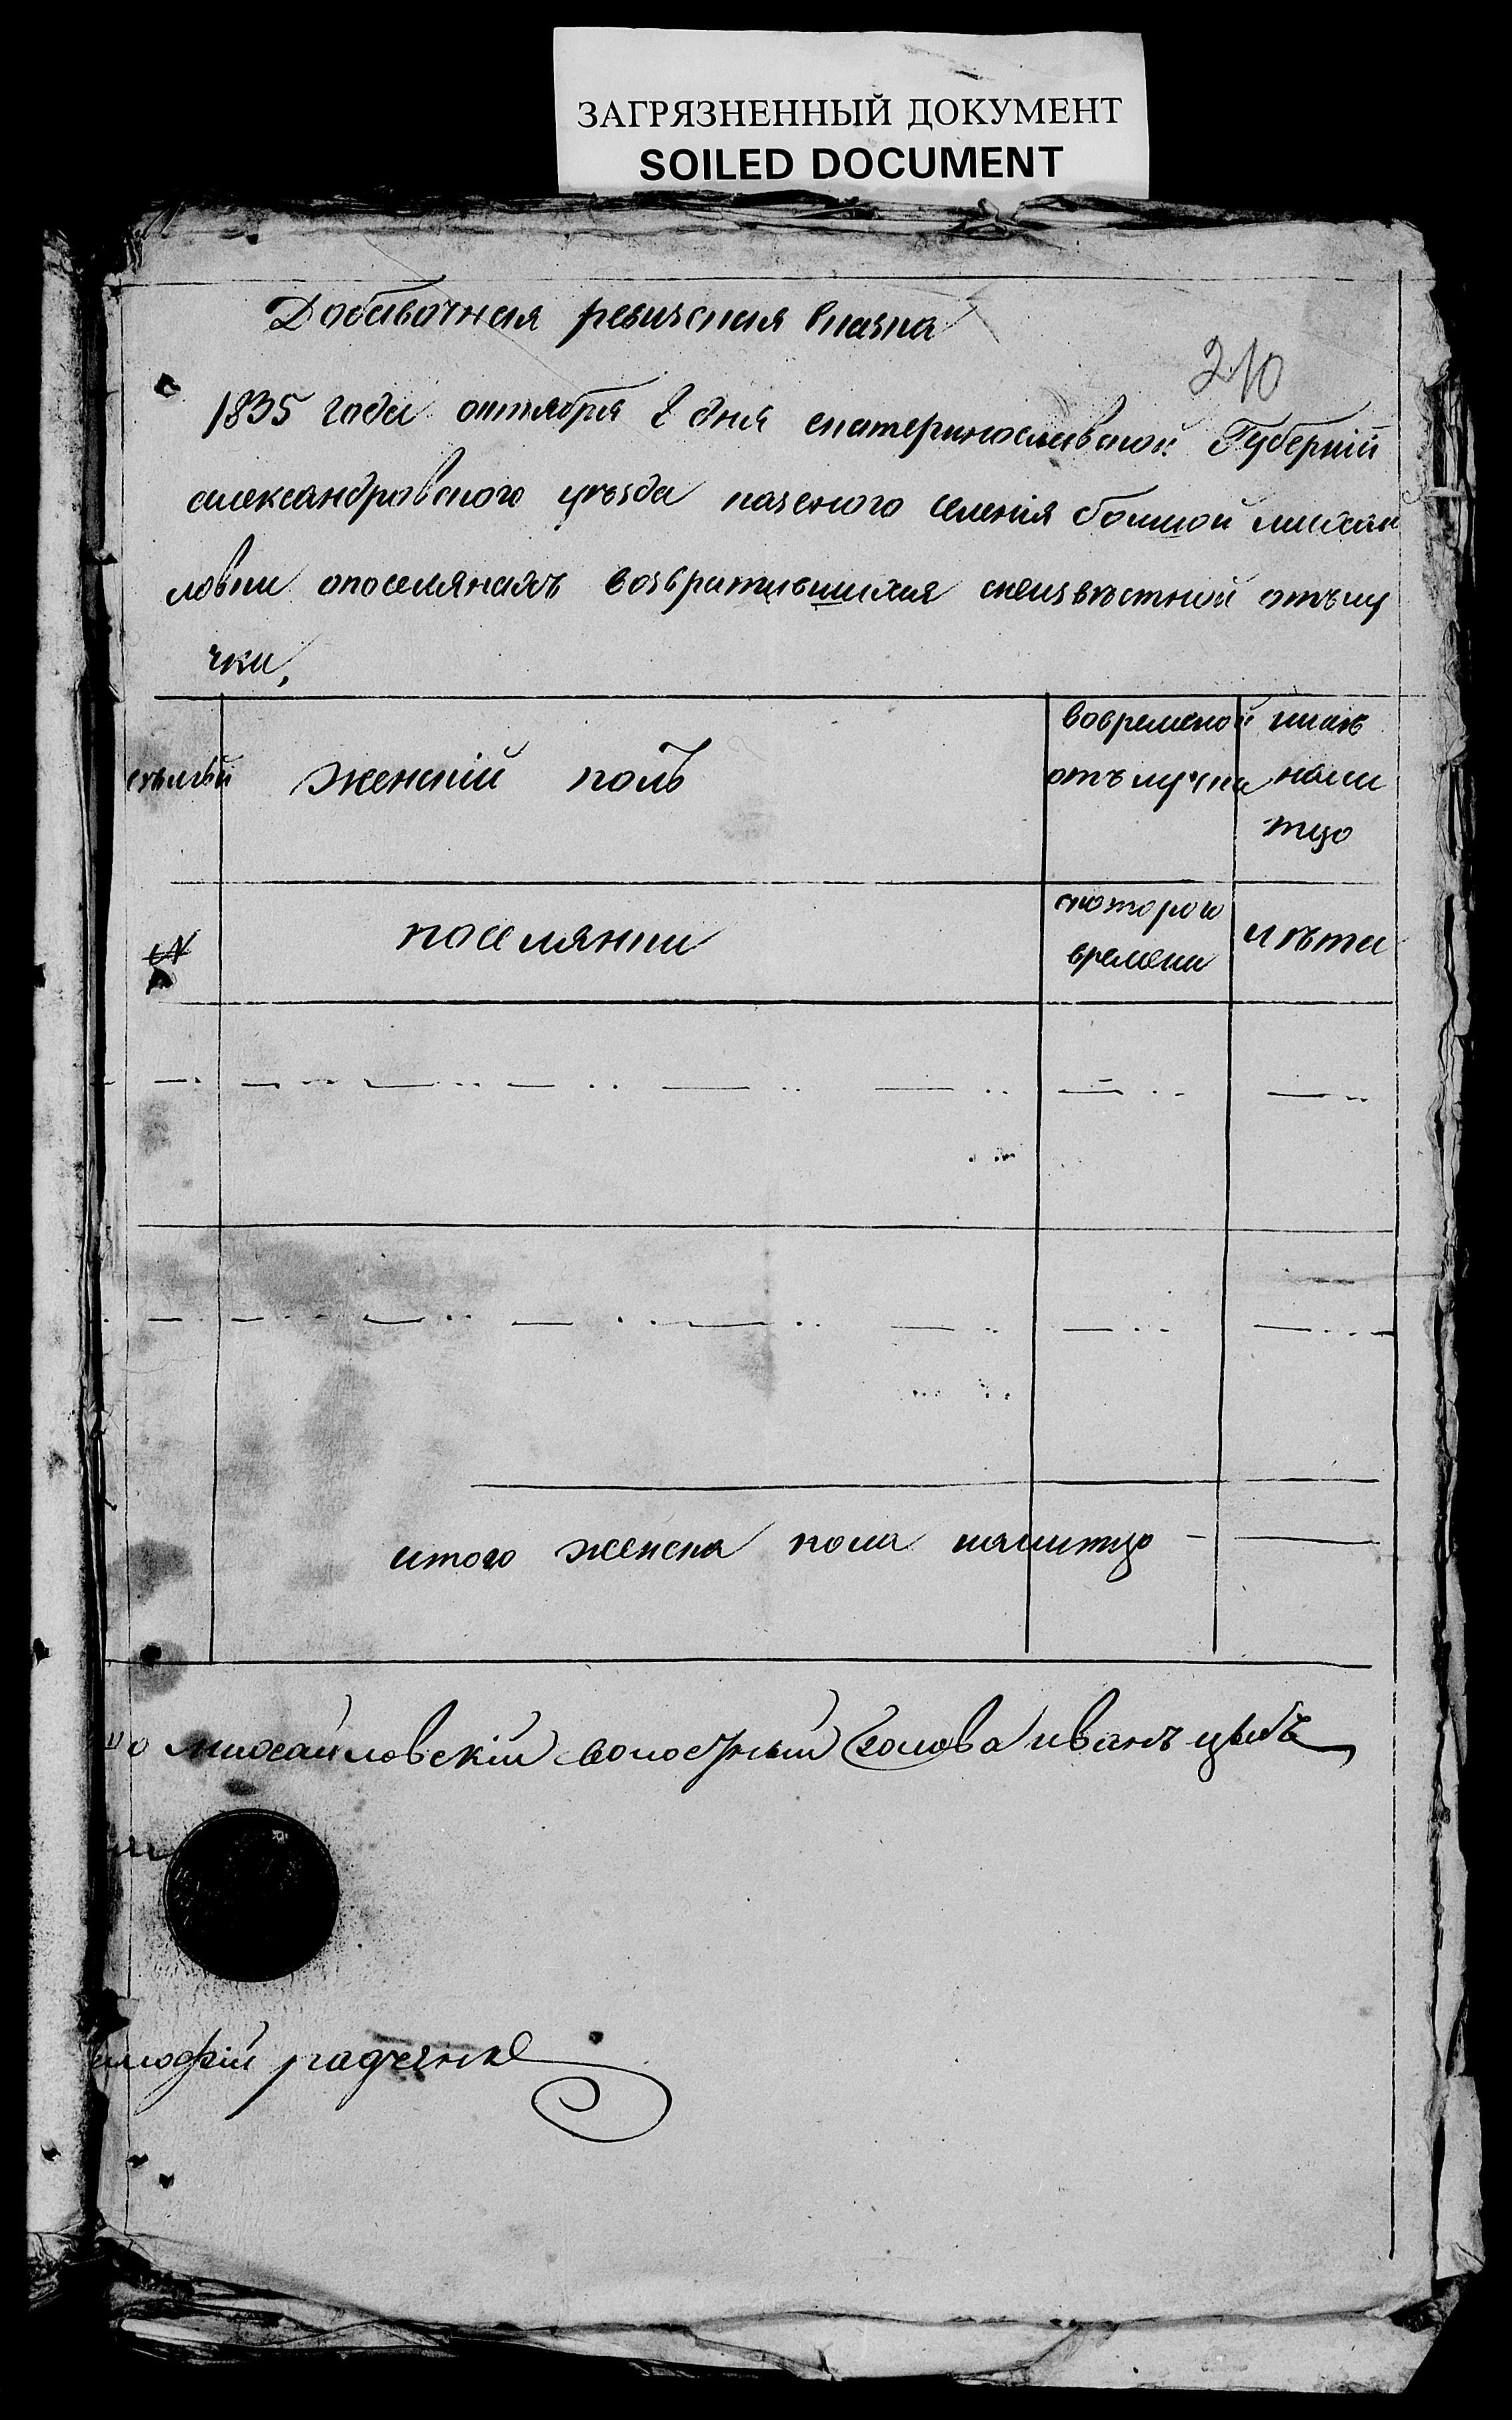 ЗАГРЯЗНЕННЫЙ ДОКУМЕНТ
SOILED DOCUMENT
Добавочная ревизская сказка
210
1835 года октября 8 дня екатеринославской Губерніи
александровского уѣзда казеного селенія болшой михаи
ловки опоселянахъ возвратившихся снеизвѣстной отълу
чки,
семьи женскій полъ вовременой отълучки нынѣ
нали
тцо
№ поселянки скоторого
времени лѣта
итого женска пола налитцо
михайловскій волостный голова иванъ цыбъ
имофій радченко